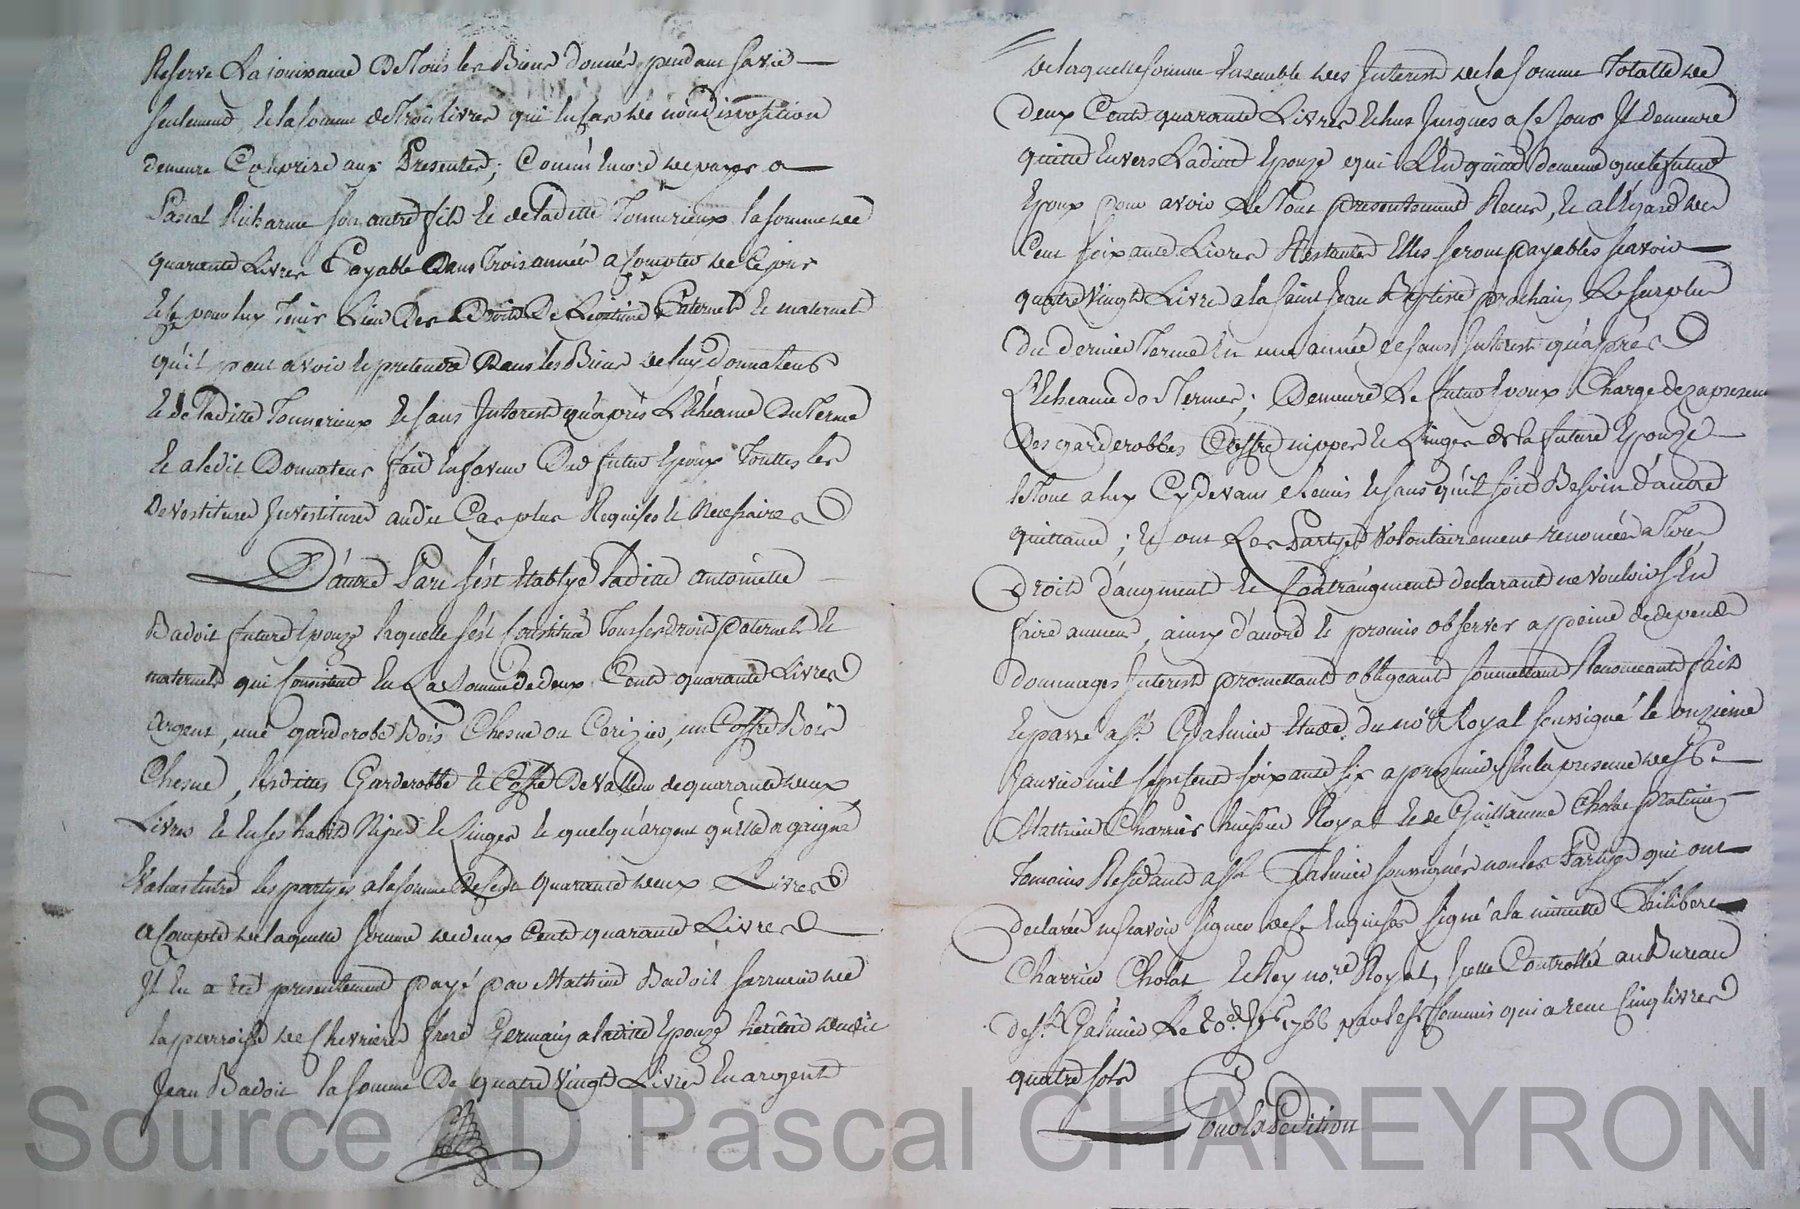 Reserve La jouissance De Tous les Biens donnés pendant sa vie
seulement, et la somme de Trois livres qui en cas de non disposition
demeure Comprise aux Presentes; Comm' encore de payer a
Pascal Richarme son autre fils et de Laditte Tonnerieux la somme de
quarante Livres Payable Dans Trois années a Comptes de Ce jour
et ce pour luy Tenir Lieu Des Droits De Legitime Paternel et maternel
qu'il peut avoir et pretendre Dans les Biens de luy donnateur
et de Laditte Tonnerieux et sans Interest qu'après L'Echéance Du Terme
et a ledit Donnateur fait en faveur Dud. futur Epoux Touttes les
Devestitures Investitures audit Cas plus Requises et Necessaires
D'autre Part s'est Etablye Laditte antoinette
Badoit future Epouze laquelle s'est Constituée Tous ses droits paternels et
maternels qui Consistent En La Somme De deux Cents quarante Livres
argent, une garderobe Bois Chesne ou Cerizier, un Coffre Bois
Chesne, lesdittes Garderobbe et Coffre De Valleur de quarante deux
Livres et en ses habits Nipes et Linges et quelqu'argent qu'elle a gaigné
Evalués Entre les partyes a la somme De Cent quarante deux Livres
a Compte de laquelle somme de deux Cents quarante Livres
Il en a été presentement payé par Mathieu Badoit de
la parroisse de Chevrieres frere Germain a laditte Epouze heritier dudit
Jean Badoit la somme De quatre Vingts Livres En argent
de laquelle somme Ensemble des Interests de la somme Totalle de
deux Cents quarante Livres Echus Jusques a Ce Jour Il demeure
quitte Envers Laditte Epouze qui L'En quitte dememe que le futur
Epoux pour avoir Le Tout presentement Receu, et a l'Egard des
Cent soixante Livres Restantes Elles seront payables scavoir
quatre Vingts Livres a la Saint Jean Baptiste prochain Le surplus
Du dernier Terme En une année et sans Interest qu'après
L'Echeance des Termes; Demeure Le futur Epoux Chargé dez a present
Des garderobbes Coffre nippes et Linges de la future Epouze
le Tout a luy Cy devant remis et sans qu'il soit Besoin d'autre
quittance; Et ont Les Partyes Volontairement renoncées a Tous
Droits d'augment et Contraugment declarant ne Vouloir s'En
faire aucun, ainsy d'accord et promis observer a peine de depends
dommages Interests promettants obligeants soumettants Renonceants fait
et passé a St. Galmier Etude du no.re Royal soussigné le onzieme
Janvier mil sept cent soixante six apres midy En la presence de Sr.
Mathieu Charrier huissier Royal et de Guillaume Cholat praticien
Temoins Residants a St. Galmier soussignés non les Partyes qui ont
declarée ne scavoir signer de ce Enquises signé a la minutte
Charrier Cholat et Rey no.re Royal, Icelle Controllé au Bureau
de St. Galmier Le 20.e 1766 par le Sr. Commis qui a receu Cinq livres
quatre sols
Pour Expedition
Source AD Pascal CHAREYRON